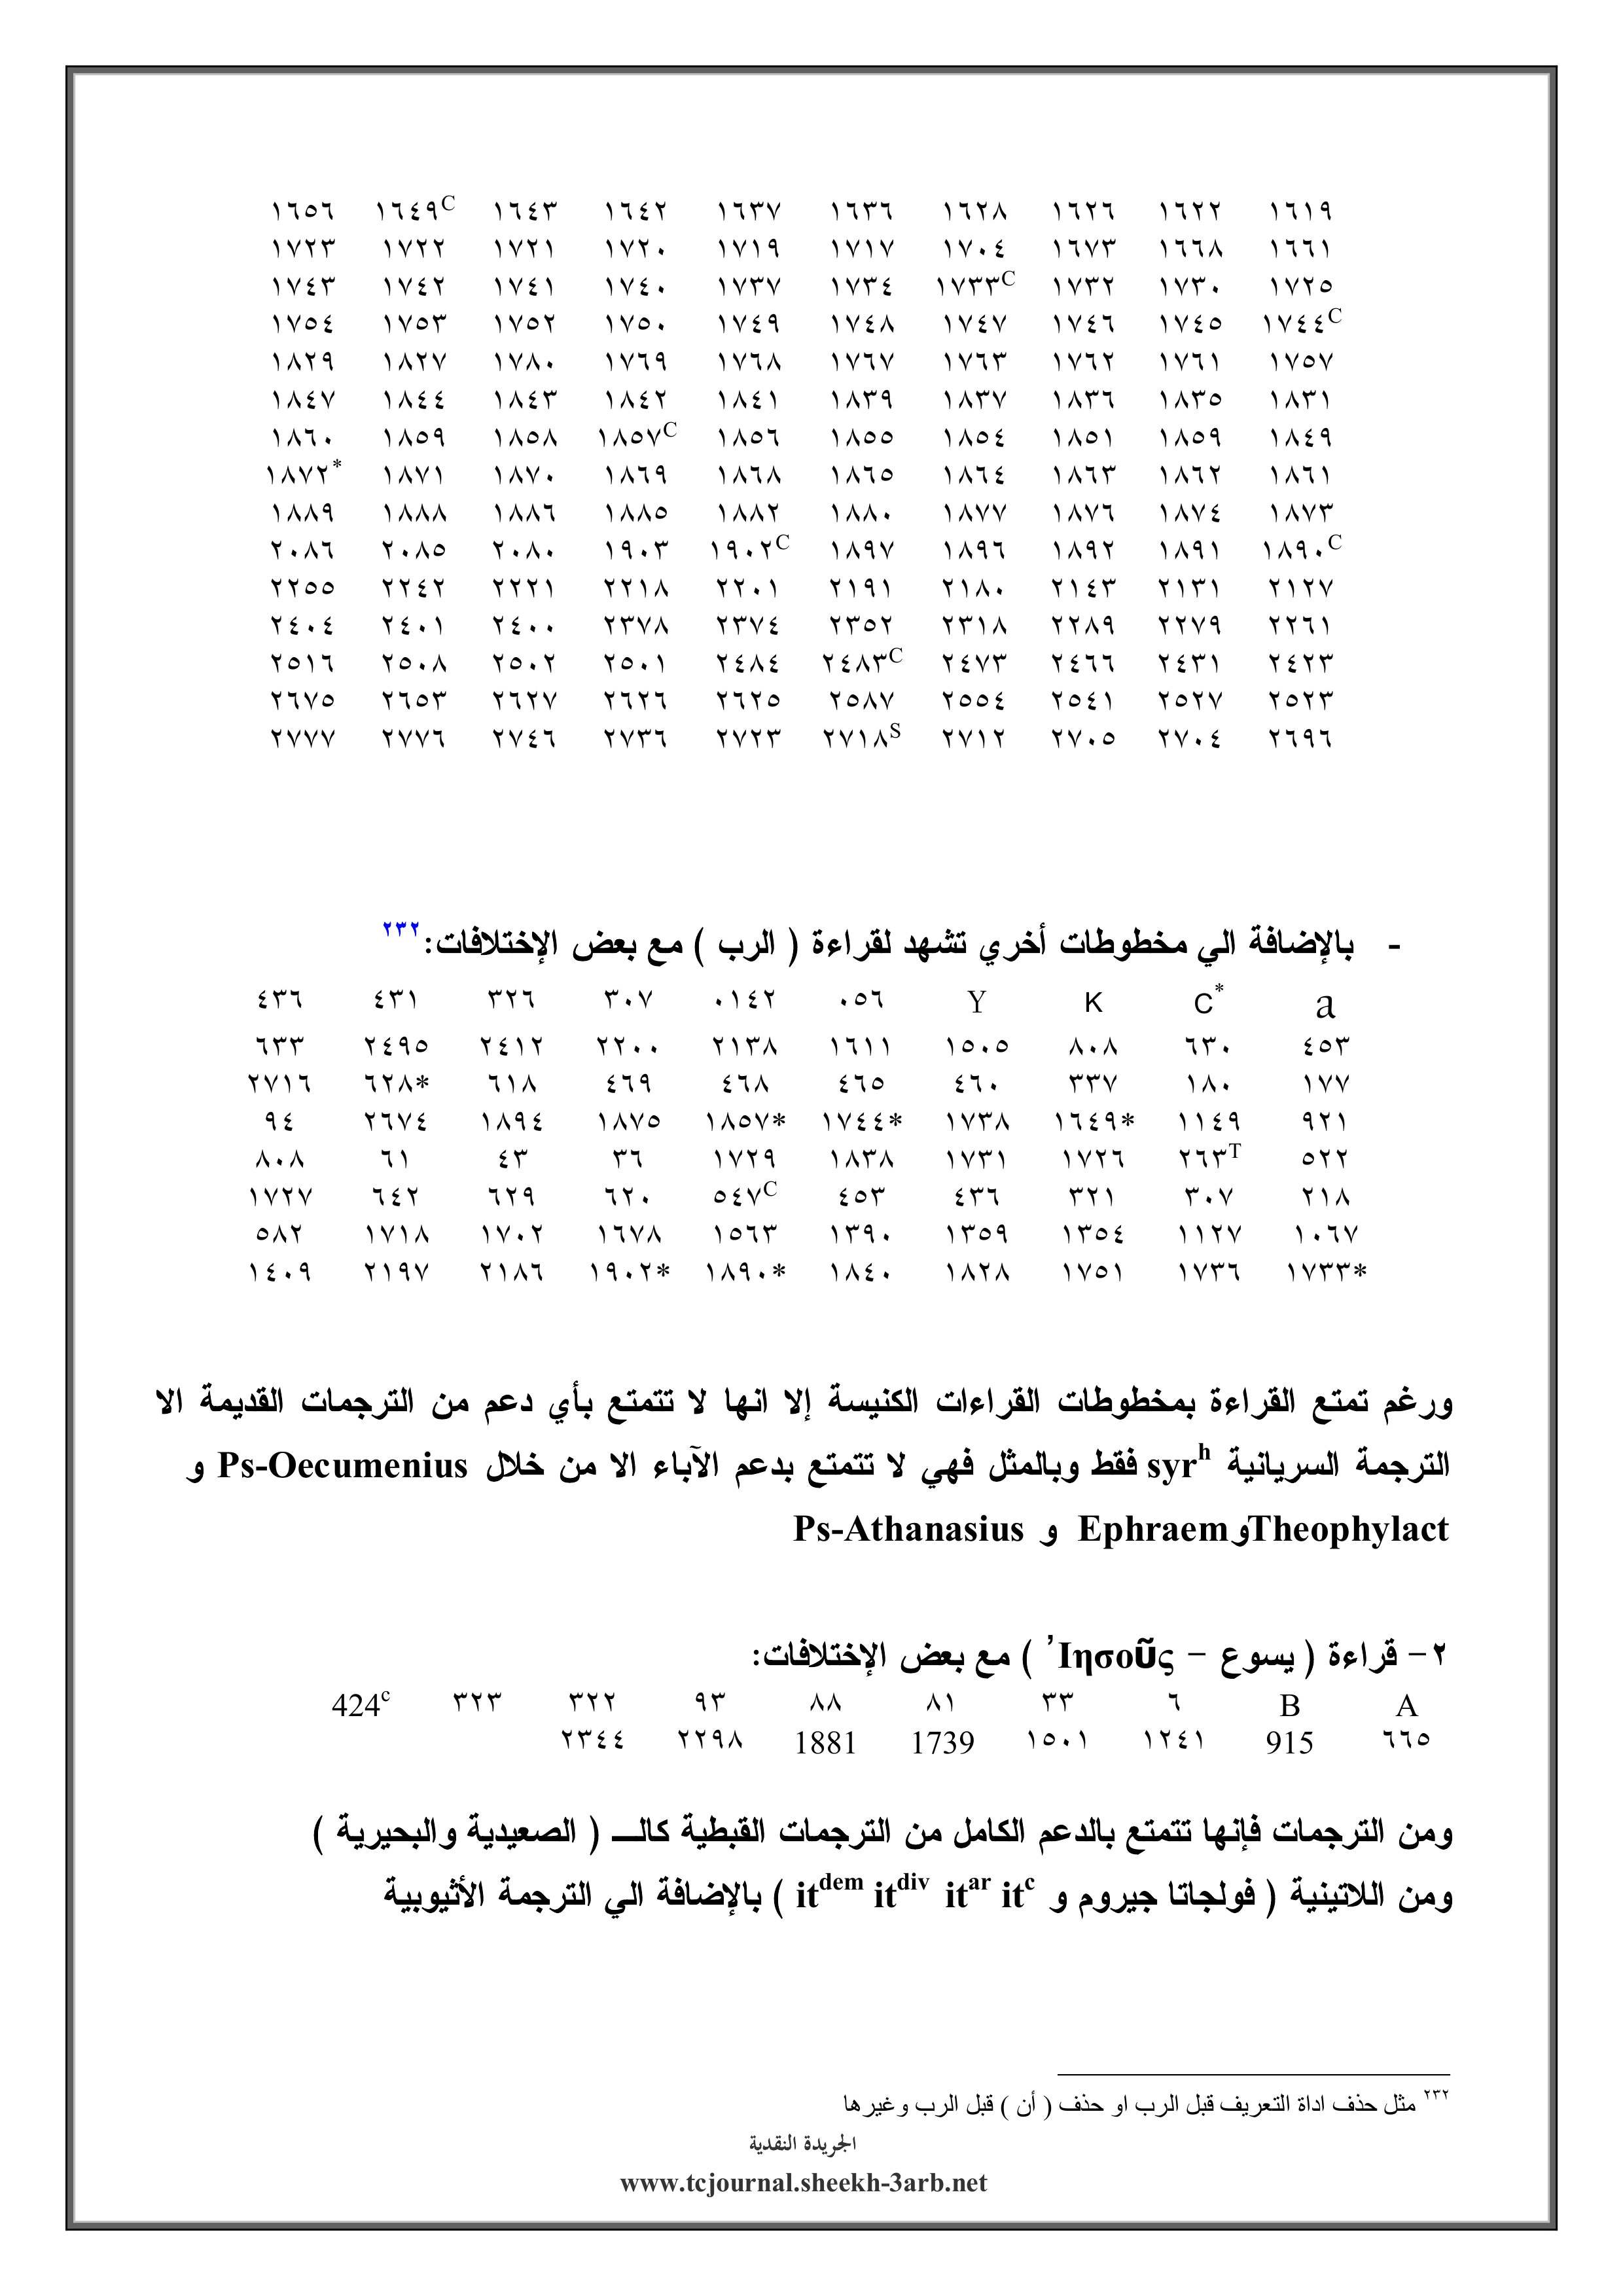 ١٦١٩ ١٦٢٢ ١٦٢٦ ١٦٢٨ ١٦٣٦ ١٦٣٧ ١٦٤٢ ١٦٤٣ ١٦٤٩C ١٦٥٦
١٦٦١ ١٦٦٨ ١٦٧٣ ١٧٠٤ ١٧١٧ ١٧١٩ ١٧٢٠ ١٧٢١ ١٧٢٢ ١٧٢٣
١٧٢٥ ١٧٣٠ ١٧٣٢ ١٧٣٣C ١٧٣٤ ١٧٣٧ ١٧٤٠ ١٧٤١ ١٧٤٢ ١٧٤٣
١٧٤٤C ١٧٤٥ ١٧٤٦ ١٧٤٧ ١٧٤٨ ١٧٤٩ ١٧٥٠ ١٧٥٢ ١٧٥٣ ١٧٥٤
١٧٥٧ ١٧٦١ ١٧٦٢ ١٧٦٣ ١٧٦٧ ١٧٦٨ ١٧٦٩ ١٧٨٠ ١٨٢٧ ١٨٢٩
١٨٣١ ١٨٣٥ ١٨٣٦ ١٨٣٧ ١٨٣٩ ١٨٤١ ١٨٤٢ ١٨٤٣ ١٨٤٤ ١٨٤٧
١٨٤٩ ١٨٥٩ ١٨٥١ ١٨٥٤ ١٨٥٥ ١٨٥٦ ١٨٥٧C ١٨٥٨ ١٨٥٩ ١٨٦٠
١٨٦١ ١٨٦٢ ١٨٦٣ ١٨٦٤ ١٨٦٥ ١٨٦٨ ١٨٦٩ ١٨٧٠ ١٨٧١ ١٨٧٢*
١٨٧٣ ١٨٧٤ ١٨٧٦ ١٨٧٧ ١٨٨٠ ١٨٨٢ ١٨٨٥ ١٨٨٦ ١٨٨٨ ١٨٨٩
١٨٩٠C ١٨٩١ ١٨٩٢ ١٨٩٦ ١٨٩٧ ١٩٠٢C ١٩٠٣ ٢٠٨٠ ٢٠٨٥ ٢٠٨٦
٢١٢٧ ٢١٣١ ٢١٤٣ ٢١٨٠ ٢١٩١ ٢٢٠١ ٢٢١٨ ٢٢٢١ ٢٢٤٢ ٢٢٥٥
٢٢٦١ ٢٢٧٩ ٢٢٨٩ ٢٣١٨ ٢٣٥٢ ٢٣٧٤ ٢٣٧٨ ٢٤٠٠ ٢٤٠١ ٢٤٠٤
٢٤٢٣ ٢٤٣١ ٢٤٦٦ ٢٤٧٣ ٢٤٨٣C ٢٤٨٤ ٢٥٠١ ٢٥٠٢ ٢٥٠٨ ٢٥١٦
٢٥٢٣ ٢٥٢٧ ٢٥٤١ ٢٥٥٤ ٢٥٨٧ ٢٦٢٥ ٢٦٢٦ ٢٦٢٧ ٢٦٥٣ ٢٦٧٥
٢٦٩٦ ٢٧٠٤ ٢٧٠٥ ٢٧١٢ ٢٧١٨S ٢٧٢٣ ٢٧٣٦ ٢٧٤٦ ٢٧٧٦ ٢٧٧٧
- بالإضافة الي مخطوطات أخري تشهد لقراءة ( الرب ) مع بعض الإختلافات:٢٣٢
a C* K Y ٠٥٦ ٠١٤٢ ٣٠٧ ٣٢٦ ٤٣١ ٤٣٦
٤٥٣ ٦٣٠ ٨٠٨ ١٥٠٥ ١٦١١ ٢١٣٨ ٢٢٠٠ ٢٤١٢ ٢٤٩٥ ٦٣٣
١٧٧ ١٨٠ ٣٣٧ ٤٦٠ ٤٦٥ ٤٦٨ ٤٦٩ ٦١٨ ٦٢٨* ٢٧١٦
٩٢١ ١١٤٩ ١٦٤٩* ١٧٣٨ ١٧٤٤* ١٨٥٧* ١٨٧٥ ١٨٩٤ ٢٦٧٤ ٩٤
٥٢٢ ٢٦٣T ١٧٢٦ ١٧٣١ ١٨٣٨ ١٧٢٩ ٣٦ ٤٣ ٦١ ٨٠٨
٢١٨ ٣٠٧ ٣٢١ ٤٣٦ ٤٥٣ ٥٤٧C ٦٢٠ ٦٢٩ ٦٤٢ ١٧٢٧
١٠٦٧ ١١٢٧ ١٣٥٤ ١٣٥٩ ١٣٩٠ ١٥٦٣ ١٦٧٨ ١٧٠٢ ١٧١٨ ٥٨٢
١٧٣٣* ١٧٣٦ ١٧٥١ ١٨٢٨ ١٨٤٠ ١٨٩٠* ١٩٠٢* ٢١٨٦ ٢١٩٧ ١٤٠٩
ورغم تمتع القراءة بمخطوطات القراءات الكنيسة إلا انها لا تتمتع بأي دعم من الترجمات القديمة الا
الترجمة السريانية syrh فقط وبالمثل فهي لا تتمتع بدعم الآباء الا من خلال Ps-Oecumenius و
Theophylactو Ephraem و Ps-Athanasius
٢- قراءة ( يسوع – Ἰησοῦς ) مع بعض الإختلافات:
A B ٦ ٣٣ ٨١ ٨٨ ٩٣ ٣٢٢ ٣٢٣ 424c
٦٦٥ 915 ١٢٤١ ١٥٠١ 1739 1881 ٢٢٩٨ ٢٣٤٤
ومن الترجمات فإنها تتمتع بالدعم الكامل من الترجمات القبطية كالـــ ( الصعيدية والبحيرية )
ومن اللاتينية ( فولجاتا جيروم و itdem itdiv itar itc ) بالإضافة الي الترجمة الأثيوبية
٢٣٢ مثل حذف اداة التعريف قبل الرب او حذف ( أن ) قبل الرب وغيرها
الجريدة النقدية
www.tcjournal.sheekh-3arb.net